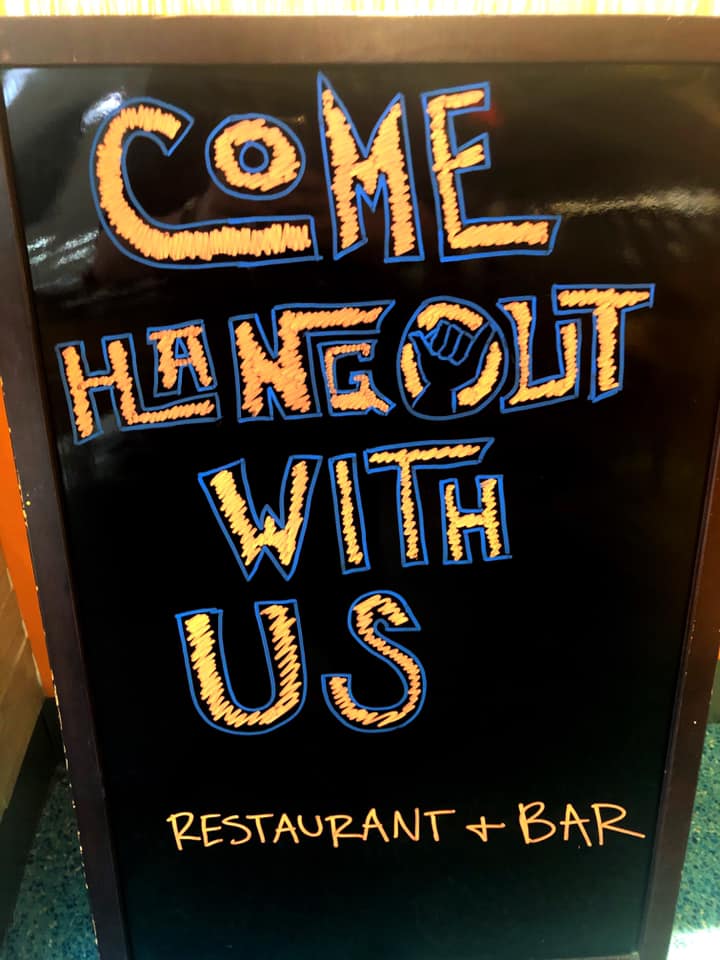 COME
HANGOUT
WITH
US
RESTAURANT + BAR